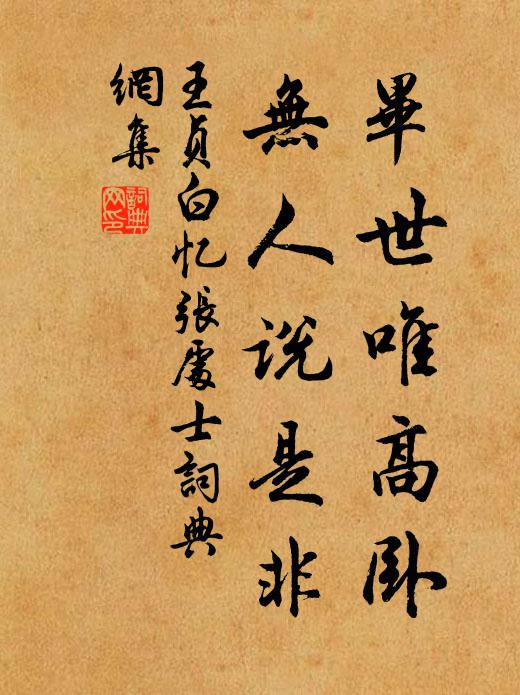 畢世唯高卧
無人说是非
王贞白忆張處士詞典
網集
詞典
网印